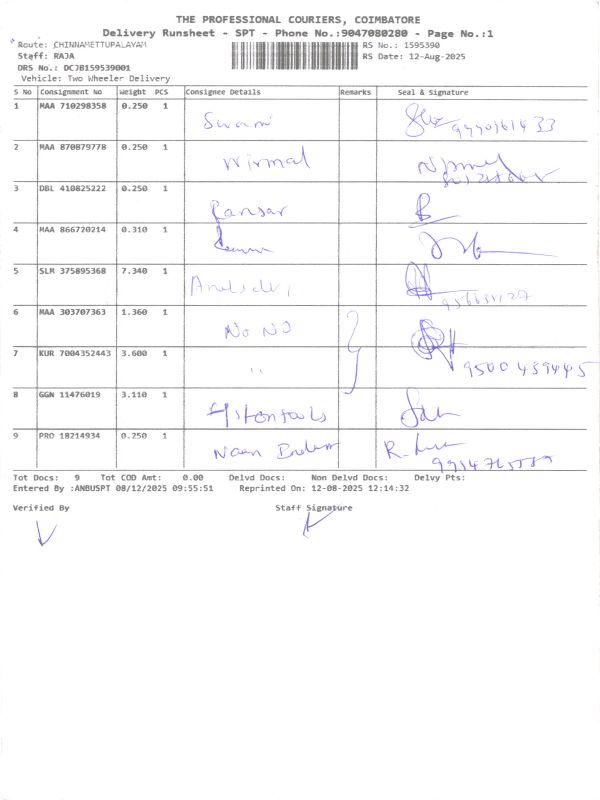 THE PROFESSIONAL COURIERS, COIMBATORE
Delivery Runsheet - SPT - Phone No.:9047080280 - Page No.:1
Route: CHINNAMETTUPALAYAM RS No.: 1595390
Staff: RAJA RS Date: 12-Aug-2025
DRS No.: DCJB159539001
Vehicle: Two Wheeler Delivery
S No Consignment No Weight PCS Consignee Details Remarks Seal & Signature
1 MAA 710298358 0.250 1 Swami
2 MAA 870879778 0.250 1 Nirmal
3 DBL 410825222 0.250 1
4 MAA 866720214 0.310 1
5 SLR 375895368 7.340 1
6 MAA 303707363 1.360 1 No NO
7 KUR 7004352443 3.600 1 " 9500459445
8 GGN 11476019 3.110 1
9 PRO 18214934 0.250 1
Tot Docs: 9 Tot COD Amt: 0.00 Delvd Docs: Non Delvd Docs: Delvy Pts:
Entered By :ANBUSPT 08/12/2025 09:55:51 Reprinted On: 12-08-2025 12:14:32
Verified By Staff Signature